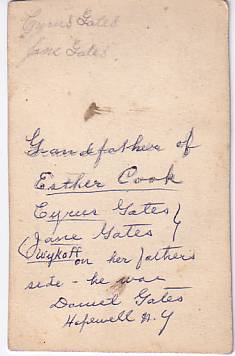 Cyrus Gates
Jane Gates
Grandfather of
Esther Cook
Cyrus Gates }
Jane Gates }
(Wykoff on her father's
side - he was
Daniel Gates
Hopewell N.Y